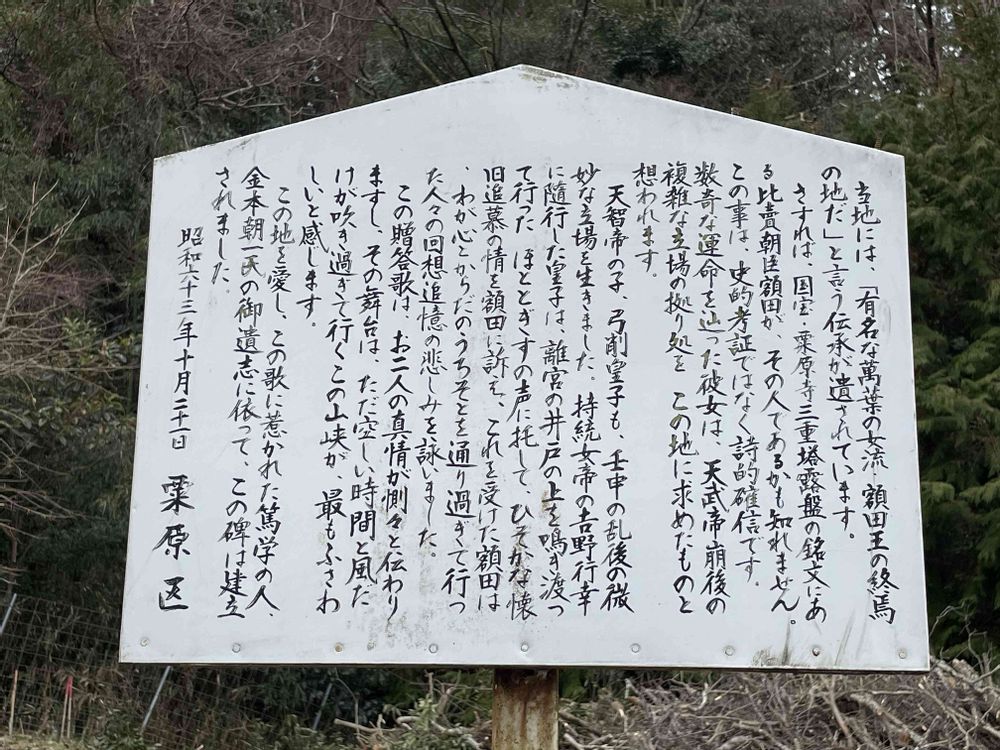 当地には、「有名な萬葉の女流 額田王の終焉
の地だ」と言う伝承が遺されています。
さすれば、国宝・粟原寺三重塔露盤の銘文にあ
る比賣朝臣額田が、その人であるかも知れません。
この事は、史的考証ではなく詩的確信です。
数奇な運命を辿った彼女は、天武帝崩後の
複雑な立場の拠り処を この地に求めたものと
想われます。
天智帝の子、弓削皇子も、壬申の乱後の微
妙な立場を生きました。持統女帝の吉野行幸
に随行した皇子は、離宮の井戸の上を鳴き渡っ
て行った ほととぎすの声に托して、ひそかな懐
旧追慕の情を額田に訴え、これを受けた額田は
、わが心とからだのうちそとを通り過ぎて行っ
た人々の回想追憶の悲しみを詠いました。
この贈答歌は、お二人の真情が惻々と伝わり
ますし、その舞台は、ただ空しい時間と風だ
けが吹き過ぎて行くこの山峡が、最もふさわ
しいと感じます。
この地を愛し、この歌に惹かれた篤学の人、
金本朝一氏の御遺志に依って、この碑は建立
されました。
昭和六十三年十月二十一日 粟原区